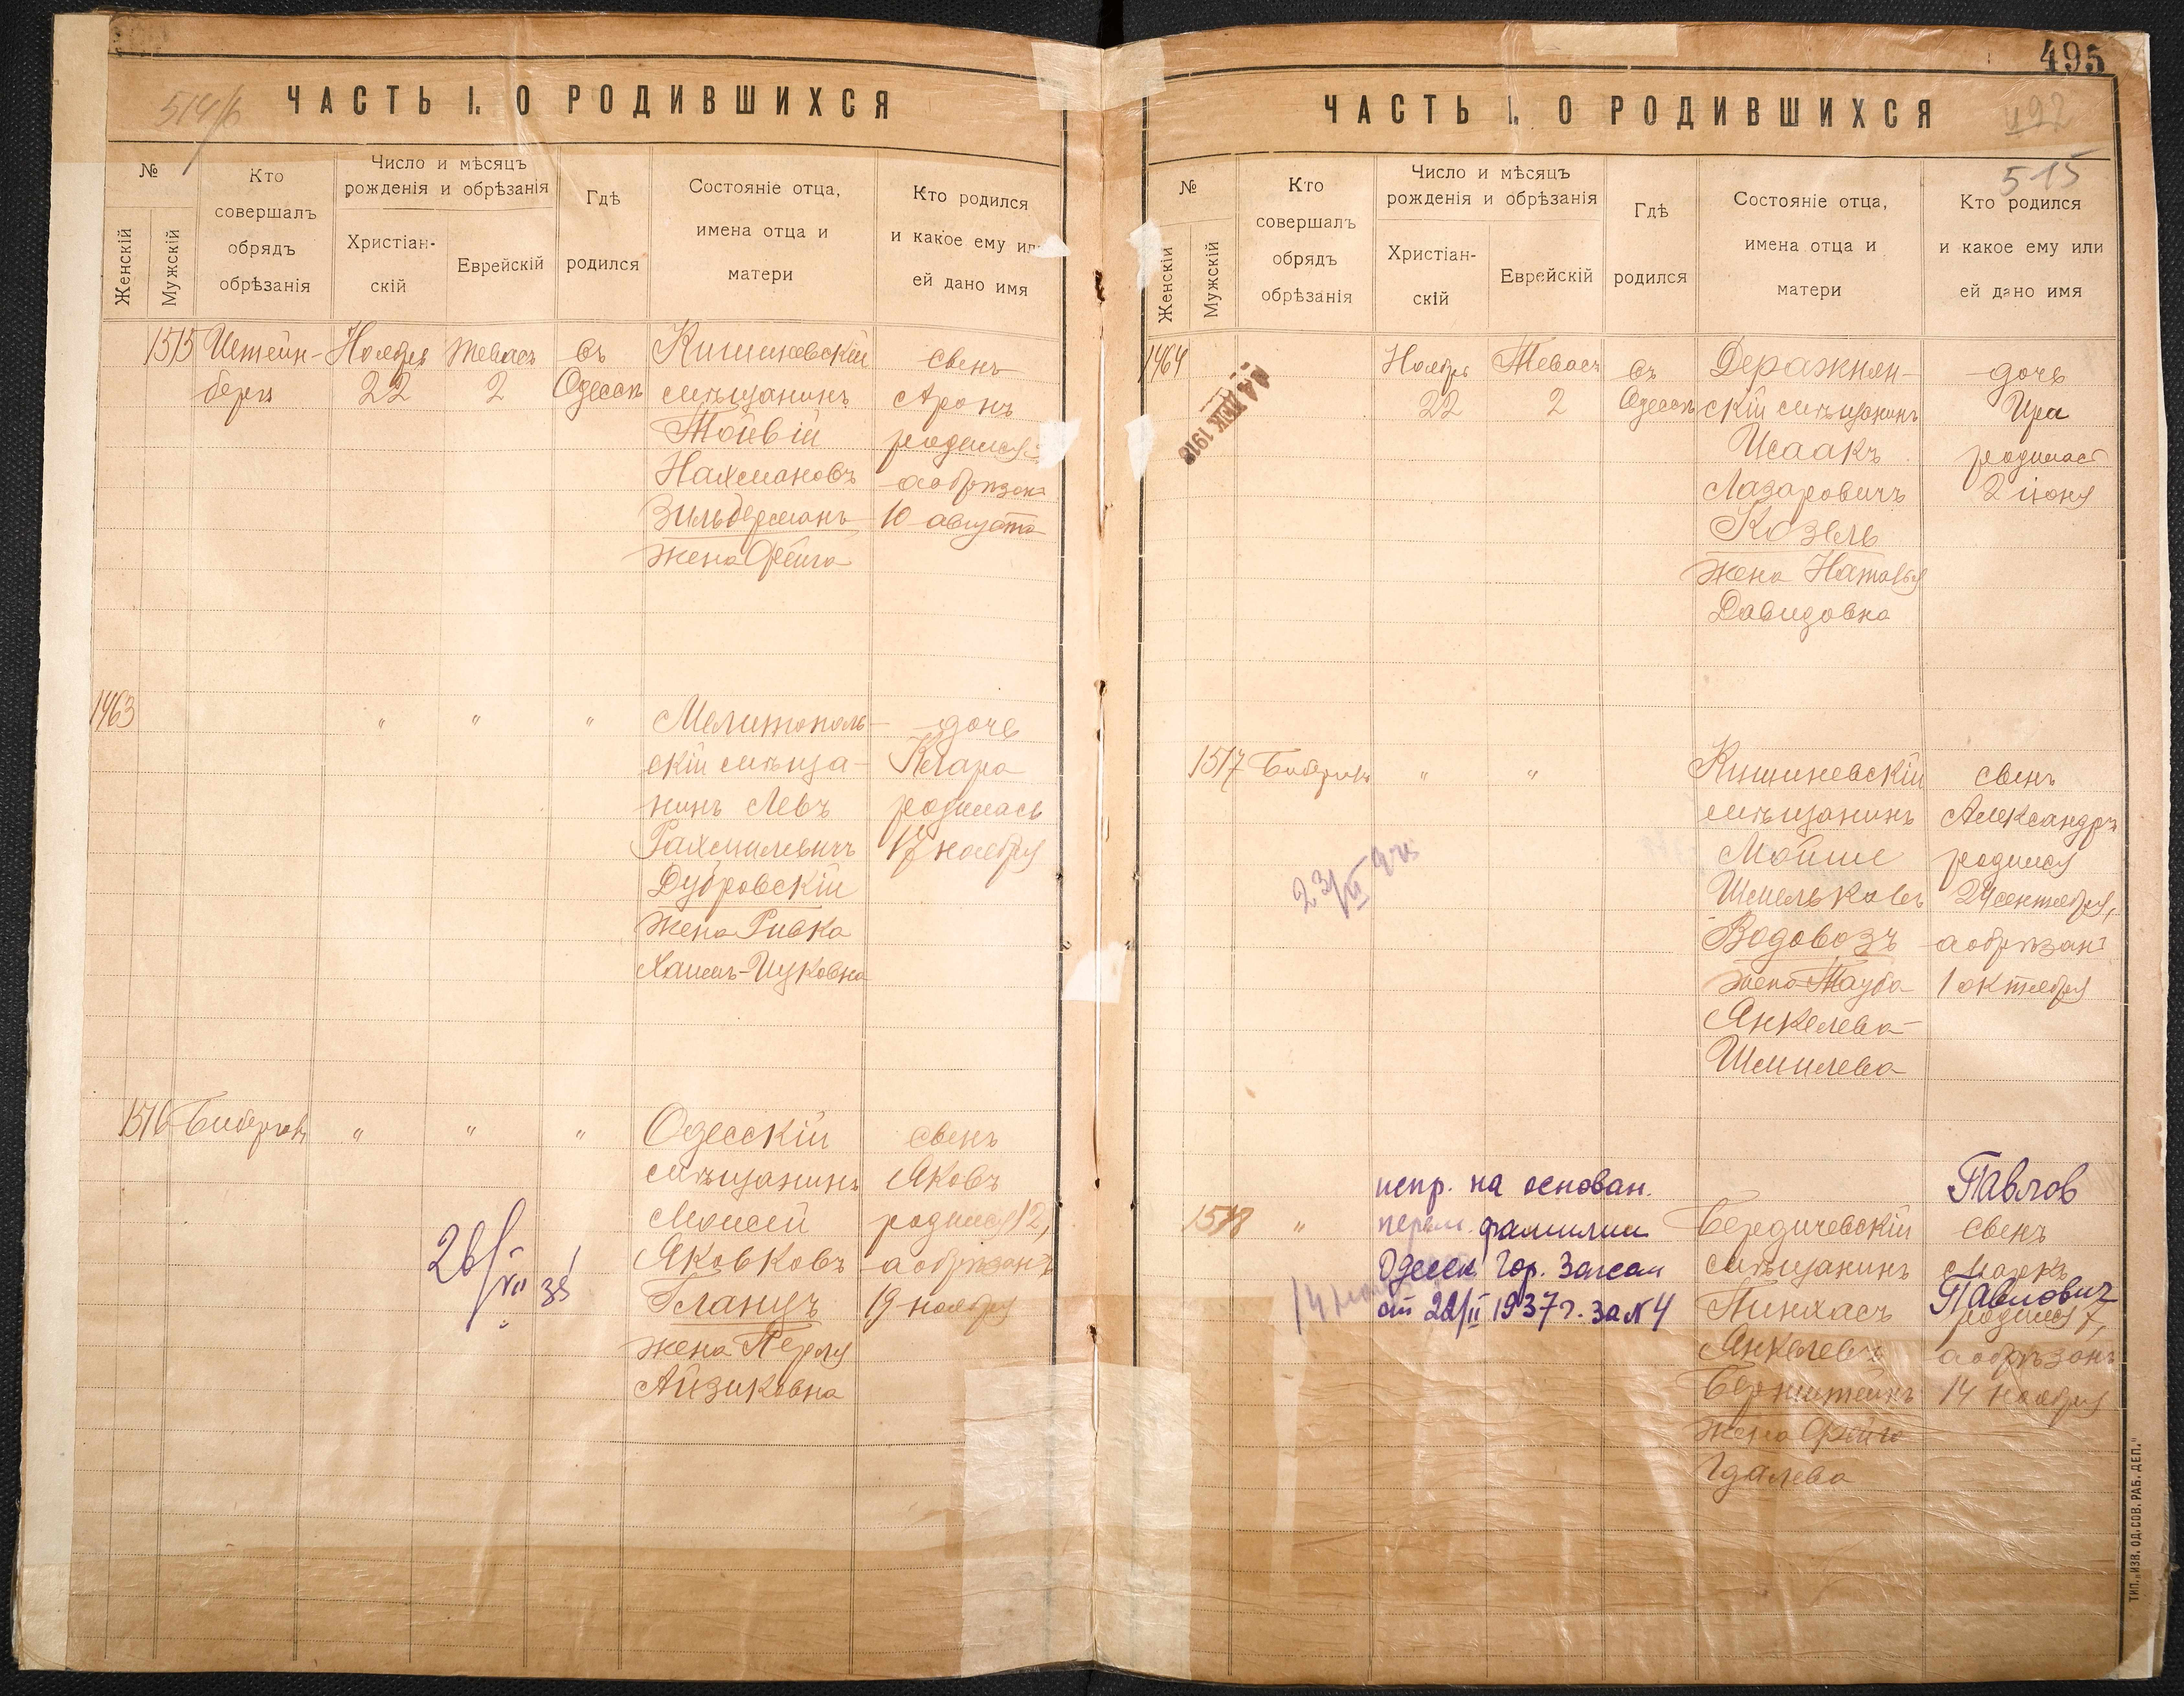 514/б
ЧАСТЬ I. О РОДИВШИХСЯ
№
Женскій
Мужскій
Кто
совершалъ
обрядъ
обрѣзанія
Число и мѣсяцъ
рожденія и обрѣзанія
Христіан-
скій
Еврейскій
Гдѣ
родился
Состояніе отца,
имена отца и
матери
Кто родился
и какое ему или
ей дано имя
1515 Штейн- Ноябрь Тевасъ въ Кишиневскій сынъ
бергъ 22 2 Одессѣ мѣщанинъ Аронъ
Тойвій родился
Нахмановъ а обрѣзанъ
Зильберманъ 10 августа
жена Фейга
1463 " " " Мелитополь- дочь
скій мѣща- Клара
нинъ Левъ родилась
Рахмилевичъ 17 ноября
Дубровскій
жена Ривка
Хаимъ-Ицковна
1516 " " " Одесскій сынъ
мѣщанинъ Яковъ
Моисей родился 12,
Яковковъ а обрѣзанъ
Гланцъ 19 ноября
жена Перля
Айзиковна
495
ЧАСТЬ I. О РОДИВШИХСЯ
492
515
№
Женскій
Мужскій
Кто
совершалъ
обрядъ
обрѣзанія
Число и мѣсяцъ
рожденія и обрѣзанія
Христіан-
скій
Еврейскій
Гдѣ
родился
Состояніе отца,
имена отца и
матери
Кто родился
и какое ему или
ей дано имя
1464 Ноябрь Тевасъ въ Деражнян- дочь
22 2 Одессѣ скій мѣщанинъ Ира
Исаакъ родилась
Лазаровичъ 2 іюня
Козель
жена Наталья
Давидовна
1517 " " Кишиневскій сынъ
мѣщанинъ Александръ
Мойше родился
Шмельковъ 24 сентября,
Водовозъ а обрѣзанъ
жена Тауба 1 октября
Янкелева-
Шмилева
испр. на основан. Павлов
1518 " перем. фамилии Бердичевскій сынъ
Одесск. Гор. Загсом мѣщанинъ Маркъ
от 22/II 1937 г. за N 4 Пинхасъ Павлович
родился 7,
Янкелевъ а обрѣзанъ
Бернштейнъ 14 ноября
жена Фейга
Гдалева
ТИП. „ИЗВ. ОД. СОВ. РАБ. ДЕП."